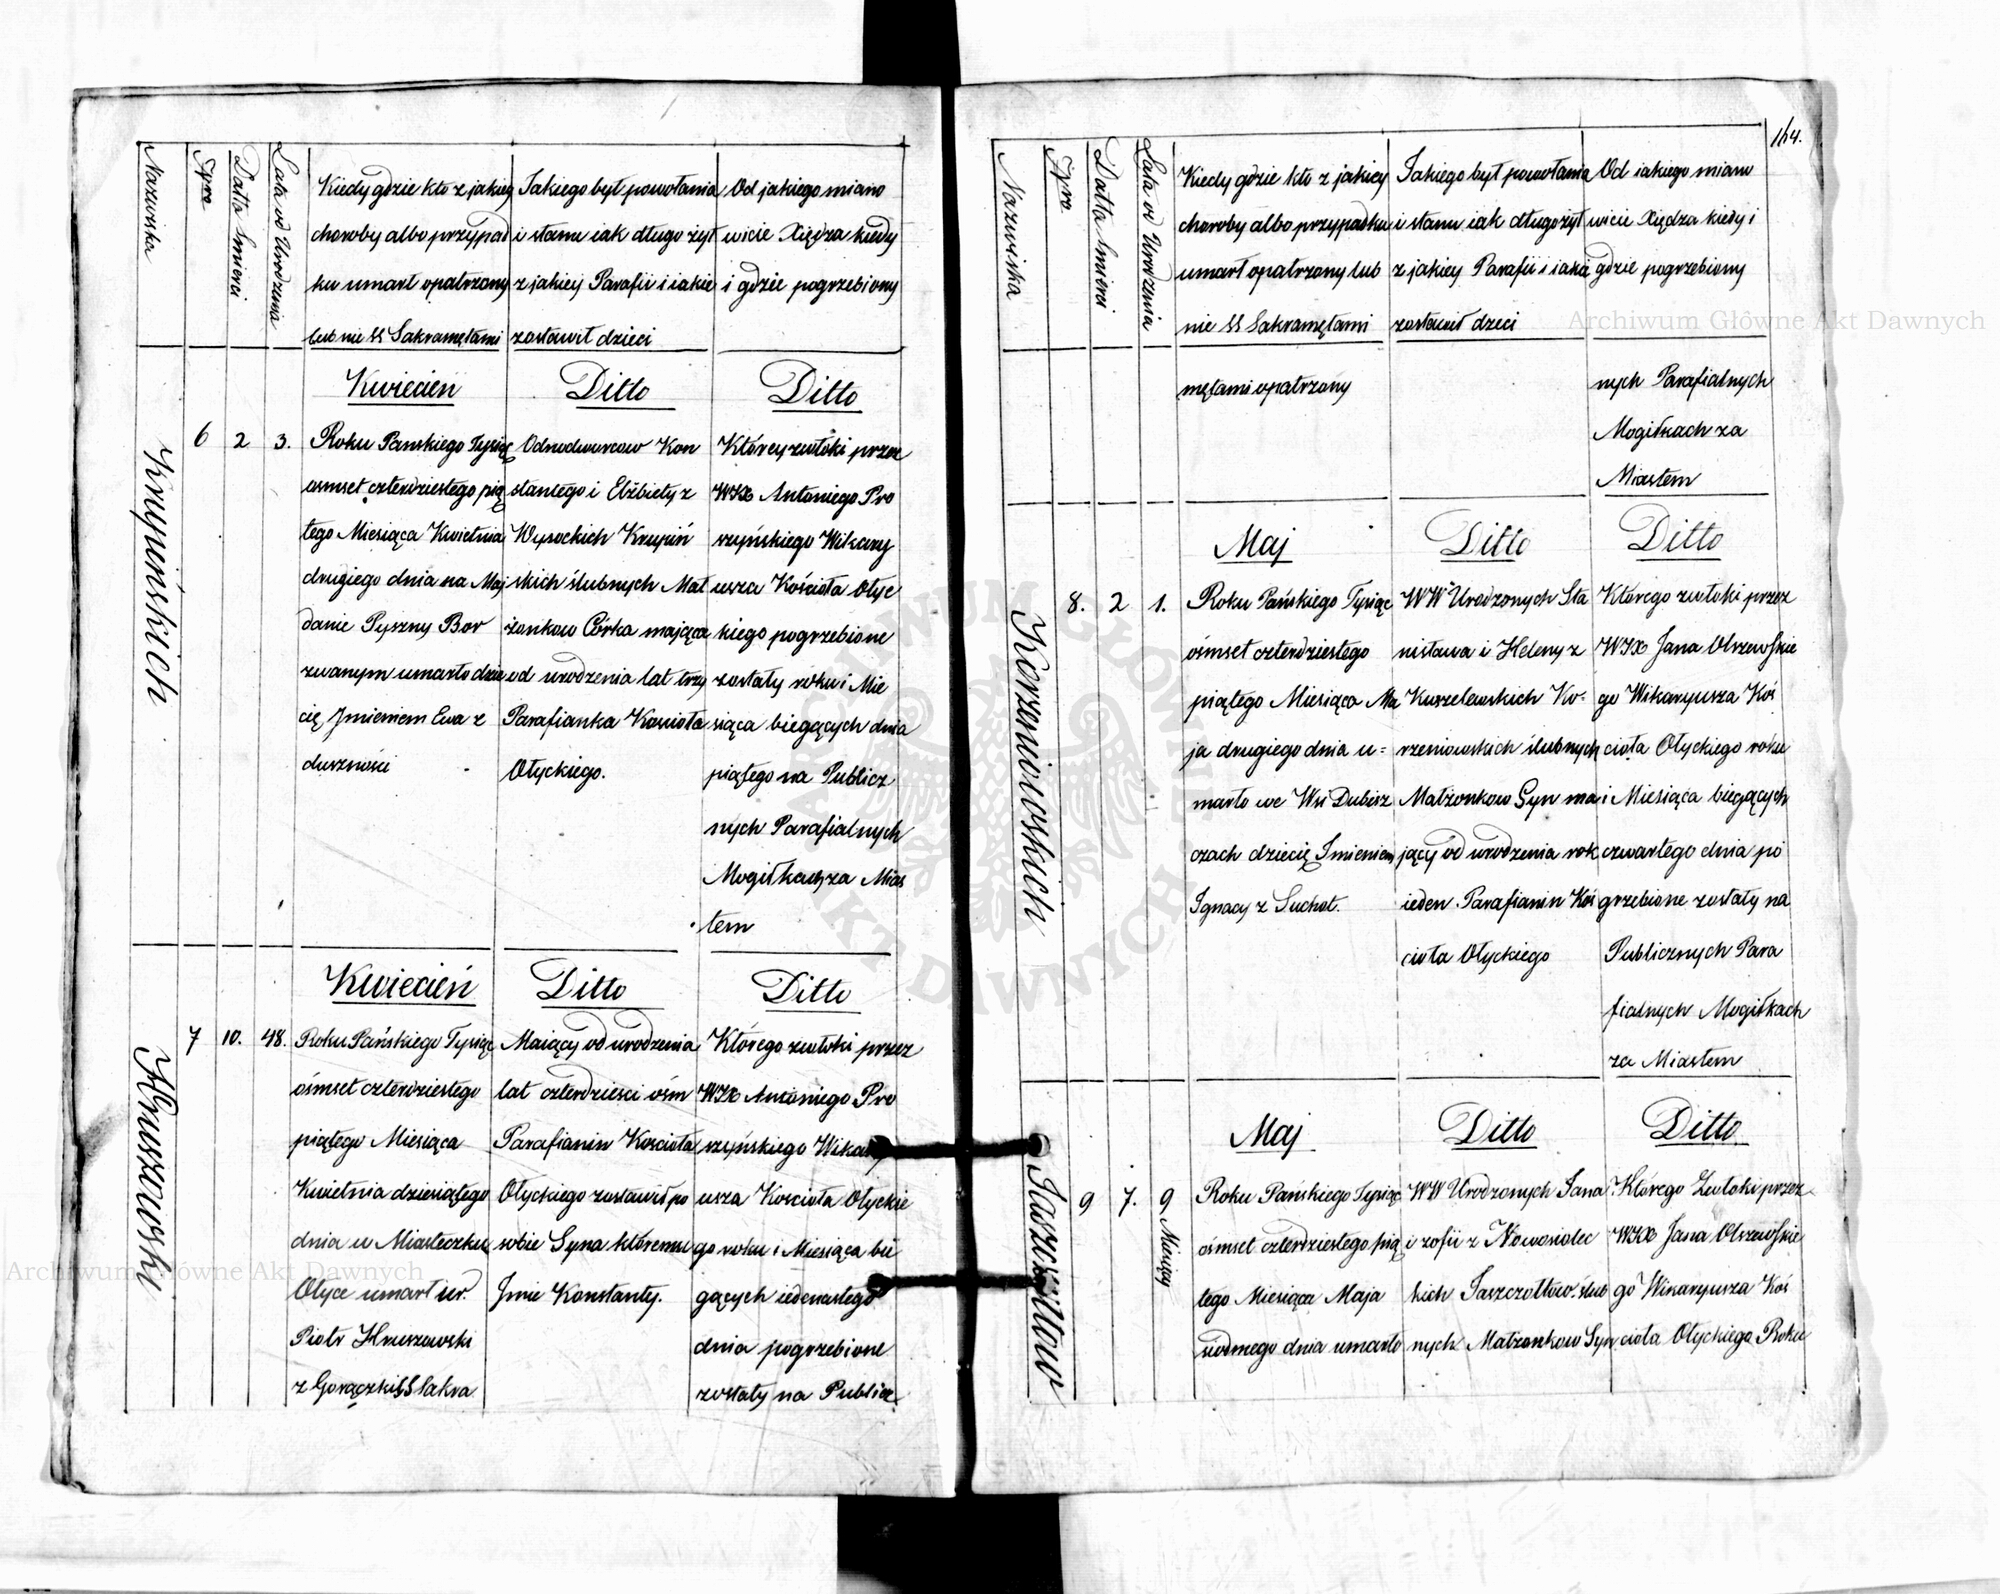 Nazwiska
Data Smierci
Lata od Urodzenia
Kiedy gdzie kto z jakiey
choroby albo przypad
ku umarł opatrzony
lub nie SS Sakramętami
Jakiego był powołania
i stanu iak długo żył
z jakiey Parafii i iakie
zostawił dzieci
Od jakiego miano
wicie Xiędza kiedy
i gdzie pogrzebiony
Krupińskich
6
2
3.
Kwiecień
Roku Panskiego Tysiąc
osmset czterdziestego pią
tego Miesiąca Kwietnia
drugiego dnia na Maj
danie Pyszny Bor
zwanym umarło dzie
cię Jmieniem Ewa z
duszności
Ditto
Odnodworcow Kon
stantego i Elżbiety z
Wysockich Krupiń
skich ślubnych Mał
żonkow Córka mająca
od urodzenia lat trzy
Parafianka Koscioła
Ołyckiego.
Ditto
Którey zwłoki przez
WJX Antoniego Pro
szyńskiego Wikary
usza Kościoła Ołyc
kiego pogrzebione
zostały roku i Mie
siąca biegących dnia
piątego na Publicz
nych Parafialnych
Mogiłkach za Mias
tem
Hruszewski
7
10.
48.
Kwiecień
Roku Pańskiego Tysiąc
ośmset czterdziestego
piątego Miesiąca
Kwietnia dziesiątego
dnia w Miasteczku
Ołyce umarł ur.
Piotr Hruszewski
z Gorączki SS Sakra
Ditto
Maiący od urodzenia
lat czterdziesci ośm
Parafianin Koscioła
Ołyckiego zostawił po
sobie Syna któremu
Jmie Konstanty.
Ditto
Którego zwłoki przez
WJX Antoniego Pro
szyńskiego Wikary
usza Koscioła Ołyckie
go roku i Miesiąca bie
gących iedenastego
dnia pogrzebione
zostały na Publicz
164.
Nazwiska
Data Smierci
Lata od Urodzenia
Kiedy gdzie kto z jakiey
choroby albo przypadku
umarł opatrzony lub
nie SS Sakramętami
Jakiego był powołania
i stanu iak długo żył
z jakiey Parafii i iakie
zostawił dzeci
Od iakiego miano
wicie Xiędza kiedy i
gdzie pogrzebiony
mętami opatrzony
nych Parafialnych
Mogiłkach za
Miastem
Korzeniowskich
8.
2
1.
Maj
Roku Pańskiego Tysiąc
ośmset czterdziestego
piątego Miesiąca Ma
ja drugiego dnia u=
marło we Wsi Dubisz
czach dziecię Jmieniem
Ignacy z Suchot.
Ditto
WW Urodzonych Sta
nisława i Heleny z
Kuszelewskich Ko-
rzeniowskich ślubnych
Małżonkow Syn ma
jący od urodzenia rok
ieden Parafianin Koś
cioła Ołyckiego
Ditto
Którego zwłoki przez
WJX Jana Olszewskie
go Wikaryusza Koś
cioła Ołyckiego roku
i Miesiąca biegących
czwartego dnia po
grzebione zostały na
Publicznych Para
fialnych Mogiłkach
za Miastem
Jaszczołtow
9
7.
9 Miesięcy
Maj
Roku Pańskiego Tysiąc
ośmset czterdziestego pią
tego Miesiąca Maja
siodmego dnia umarło
Ditto
WW Urodzonych Jana
i Zofii z Nowosielec
kich Jaszczołtow ślub
nych Małżonkow Syn
Ditto
Którego Zwłoki przez
WJX Jana Olszewskie
go Wikaryusza Koś
cioła Ołyckiego Roku
Archiwum Główne Akt Dawnych
Archiwum Główne Akt Dawnych
ARCHIWUM GŁÓWNE AKT DAWNYCH